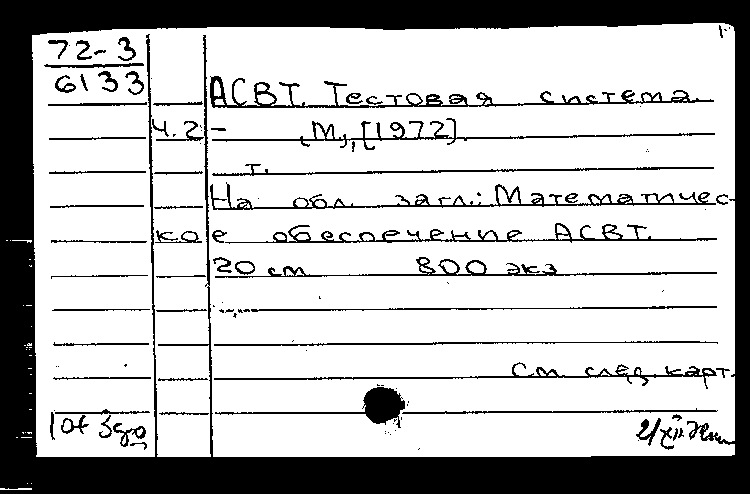 72-3
6133
АСВТ. Тестовая система.
Ч.2 - (М), [1972].
т.
На обл. загл.: Математичес-
кое обеспечение АСВТ.
20 см 800 экз
См. след. карт.